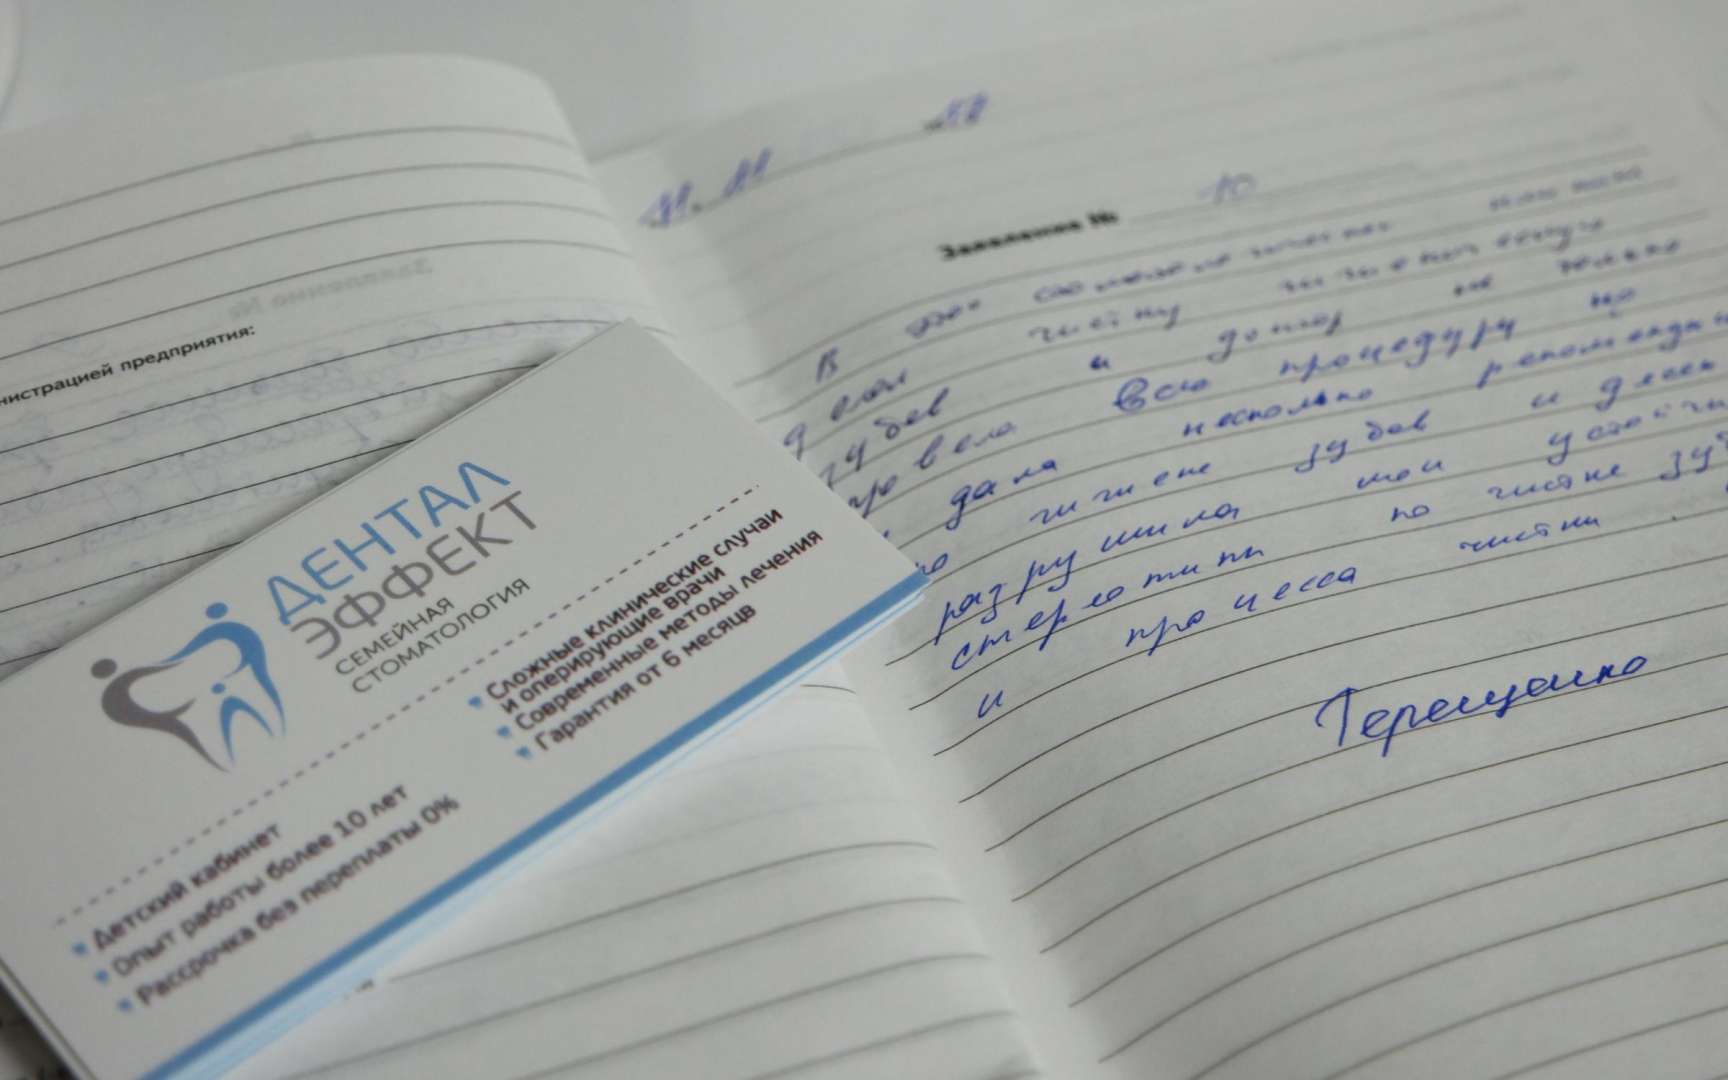 нистрацией предприятия:
ДЕНТАЛ
ЭФФЕКТ
СЕМЕЙНАЯ
СТОМАТОЛОГИЯ
Сложные клинические случаи
и оперирующие врачи
Современные методы лечения
Гарантия от 6 месяцв
Детский кабинет
Опыт работы более 10 лет
Рассрочка без переплаты 0%
11. 11
Заявление № 10
В этой
чистку гигиени
зубов и доктор не только
провела всю процедуру но
дала несколько рекоменда
по гигиене зубов и десен
разрушила мои устой
стереотипы по чистке зу
и процесса чистки.
Терещенко